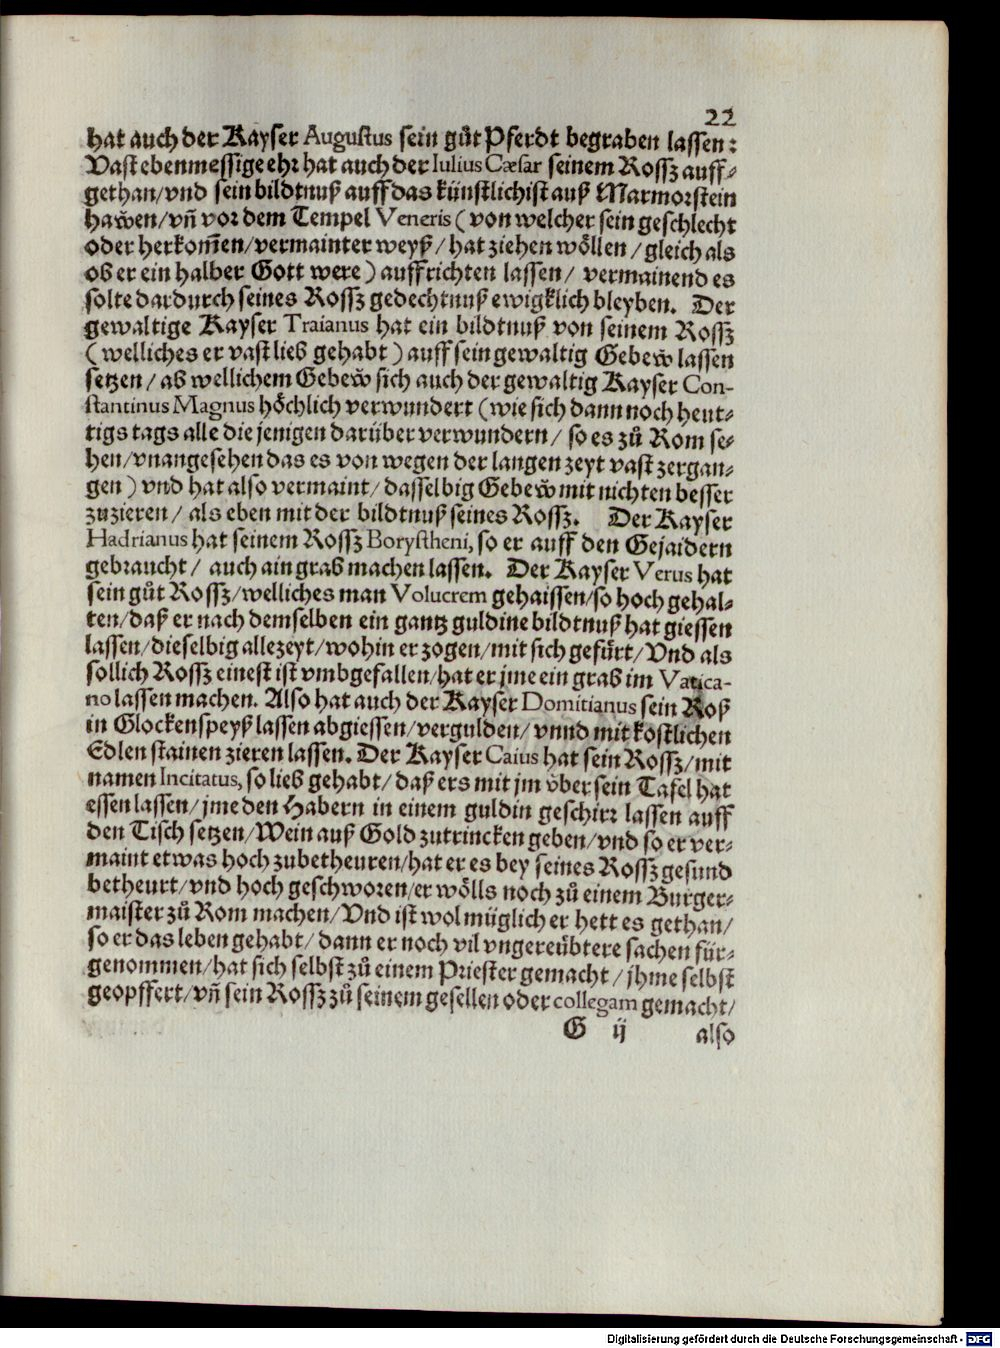 22
hat auch der Kayser Augustus sein gůt Pferdt begraben lassen:
Vast ebenmessige ehr hat auch der Iulius Cæsar seinem Rossz auff-
gethan/vnd sein bildtnuß auff das künstlichist auß Marmorstein
hawen/vñ vor dem Tempel Veneris (von welcher sein geschlecht
oder herkom̃en/vermainter weyß/hat ziehen wöllen/gleich als
ob er ein halber Gott were) auffrichten lassen/ vermainend es
solte dardurch seines Rossz gedechtnuß ewigklich bleyben. Der
gewaltige Kayser Traianus hat ein bildtnuß von seinem Rossz
(welliches er vast lieb gehabt) auff sein gewaltig Gebew lassen
setzen/ab wellichem Gebew sich auch der gewaltig Kayser Con-
stantinus Magnus höchlich verwundert (wie sich dann noch heut-
tigs tags alle die jenigen darüber verwundern/ so es zů Rom se-
hen/vnangesehen das es von wegen der langen zeyt vast zergan-
gen) vnd hat also vermaint/dasselbig Gebew mit nichten besser
zuzieren/ als eben mit der bildtnuß seines Rossz. Der Kayser
Hadrianus hat seinem Rossz Borystheni, so er auff den Gejaidern
gebraucht/ auch ain grab machen lassen. Der Kayser Verus hat
sein gůt Rossz/welliches man Volucrem gehaissen/so hoch gehal-
ten/daß er nach demselben ein gantz guldine bildtnuß hat giessen
lassen/dieselbig allezeyt/wohin er zogen/mit sich gefürt/Vnd als
sollich Rossz einest ist vmbgefallen/hat er jme ein grab im Vatica-
no lassen machen. Also hat auch der Kayser Domitianus sein Roß
in Glockenspeyß lassen abgiessen/vergulden/vnnd mit kostlichen
Edlen stainen zieren lassen. Der Kayser Caius hat sein Rossz/mit
namen Incitatus, so lieb gehabt/daß ers mit jm vber sein Tafel hat
essen lassen/jme den Habern in einem guldin geschirr lassen auff
den Tisch setzen/Wein auß Gold zutrincken geben/vnd so er ver-
maint etwas hoch zubetheuren/hat er es bey seines Rossz gesund
betheurt/vnd hoch geschworen/er wölls noch zů einem Burger-
maister zů Rom machen/Vnd ist wol müglich er hett es gethan/
so er das leben gehabt/dann er noch vil vngereübtere sachen für-
genommen/hat sich selbst zů einem Priester gemacht/jhme selbst
geopffert/vñ sein Rossz zů seinem gesellen oder collegam gemacht/
G ij also
Digitalisierung gefördert durch die Deutsche Forschungsgemeinschaft - DFG